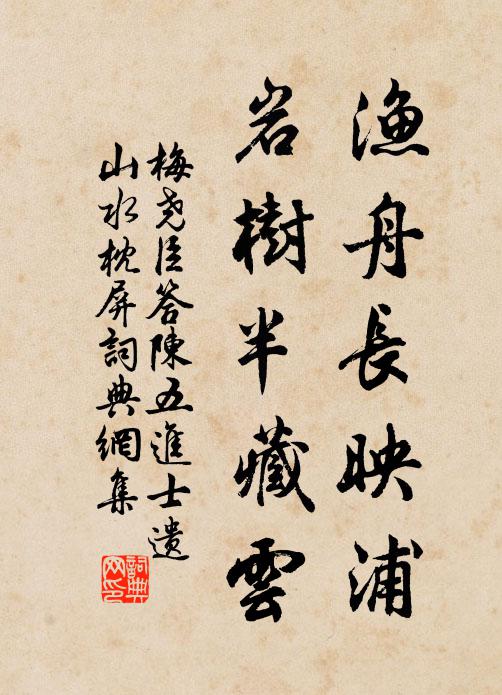 漁舟長映浦
岩樹半藏雲
梅堯臣答陳五進士遺
山水枕屏詞典網集
詞典網印